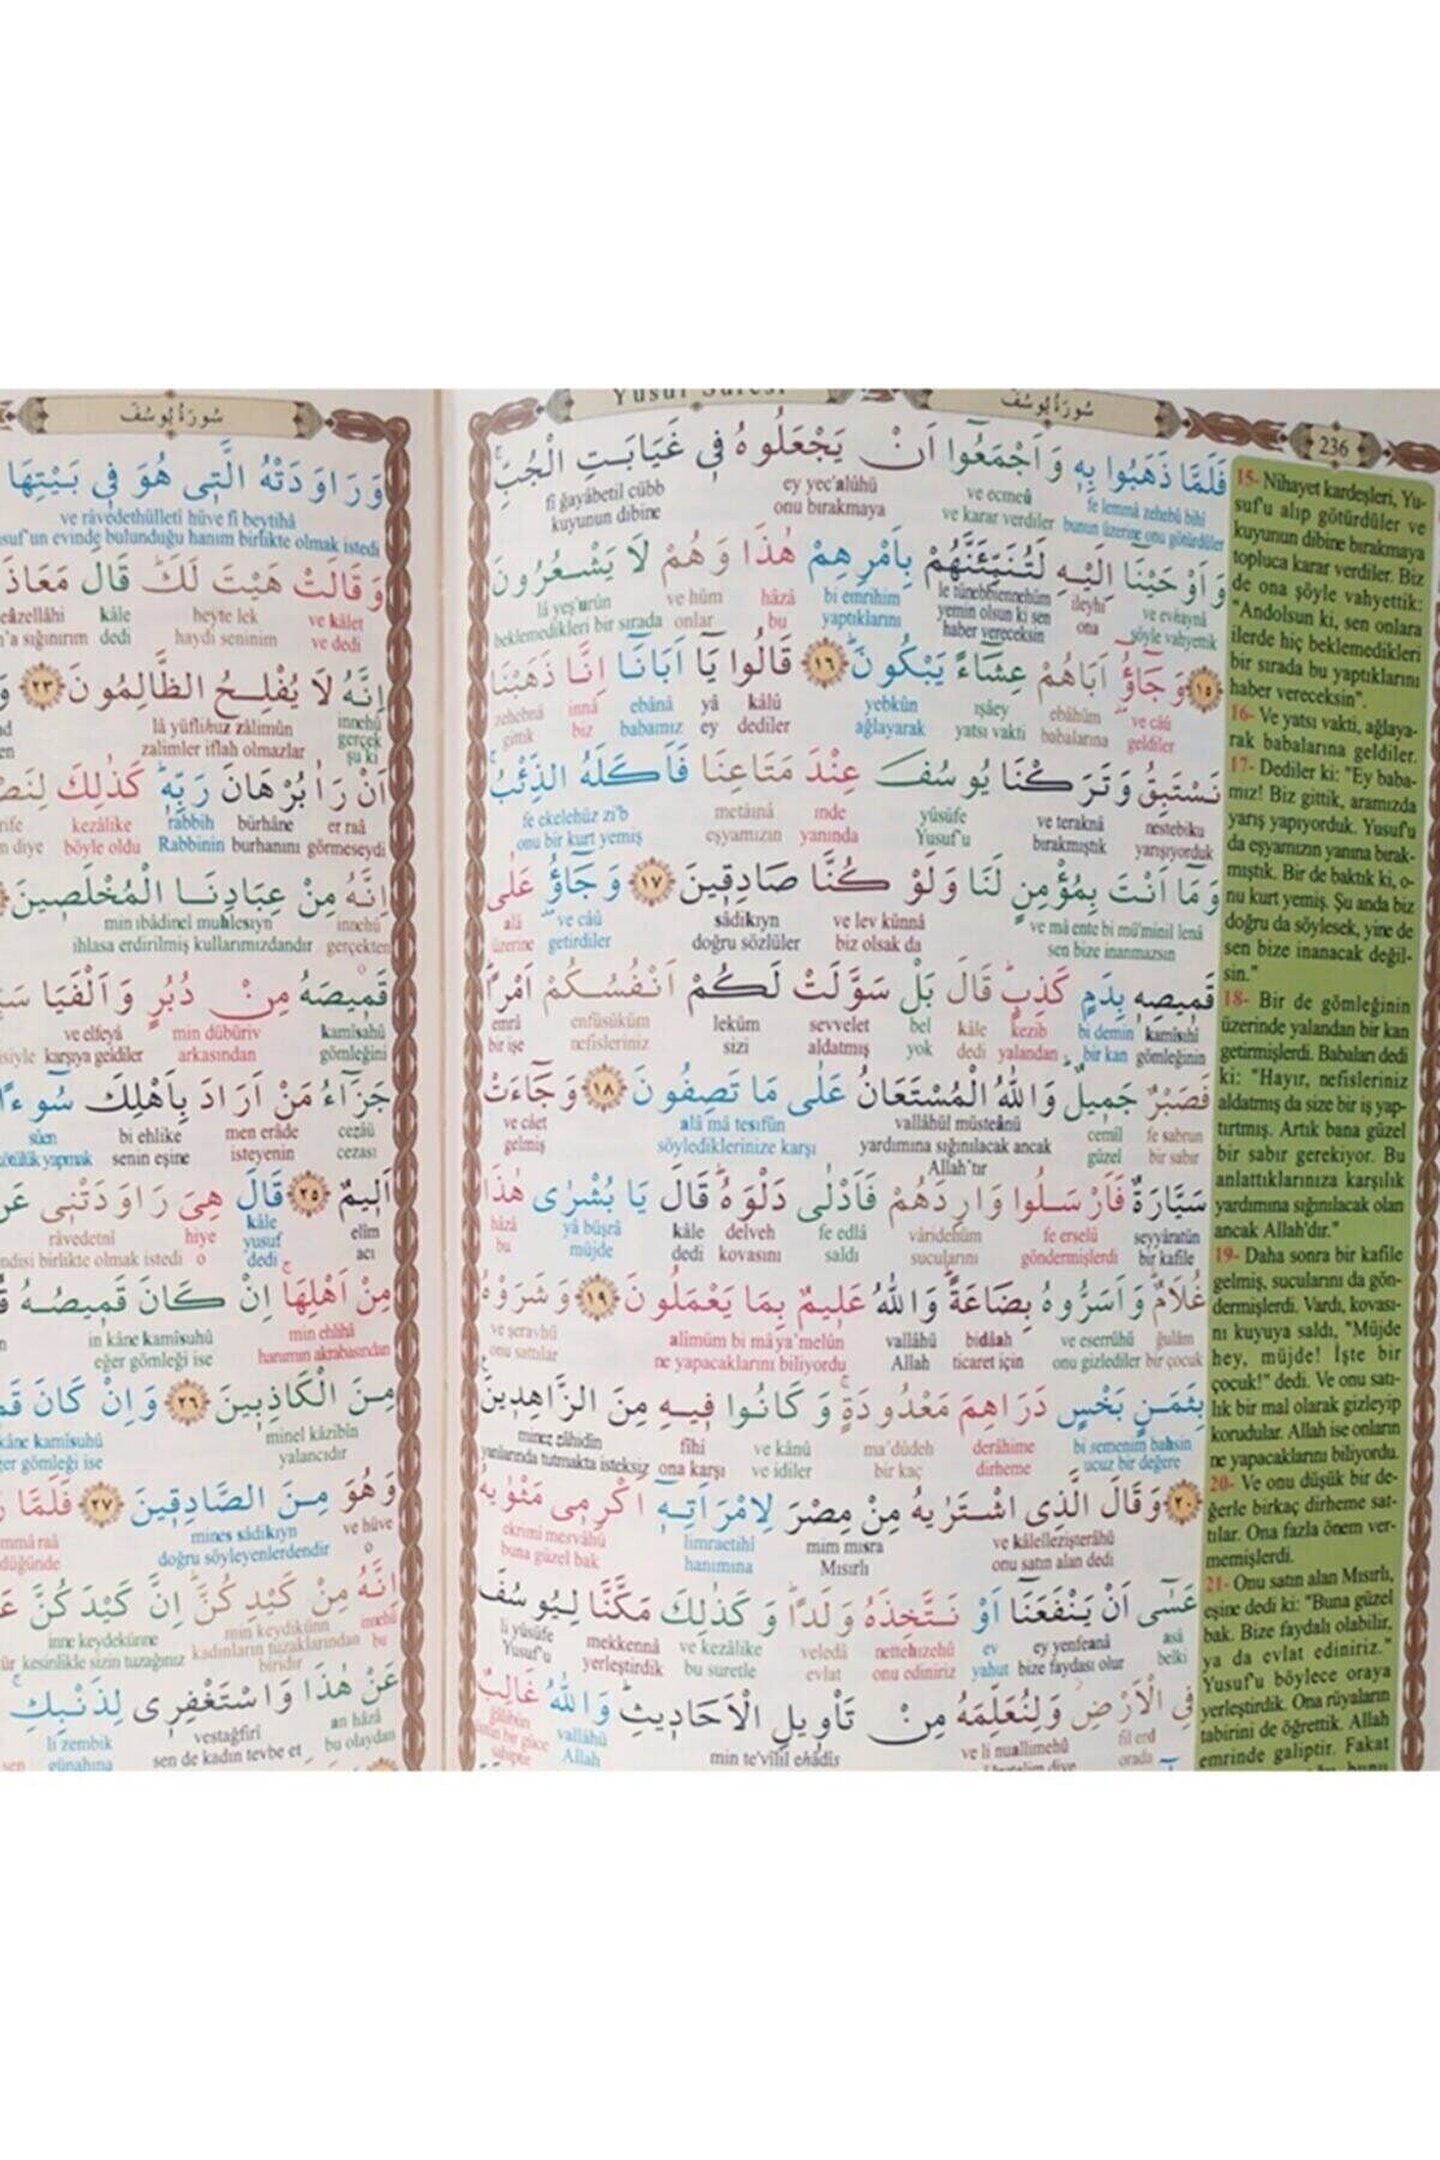 سُورَةُ يُوسُفَ
236
فَلَمَّا ذَهَبُوا بِهِ وَاَجْمَعُٓوا اَنْ يَجْعَلُوهُ فٖي غَيَابَتِ الْجُبِّۚ
fe lemmâ zehebû bihî ve ecmeû ey yec'alûhü fî ğayâbetil cübb
bunun üzerine onu götürdüler ve karar verdiler onu bırakmaya kuyunun dibine
وَاَوْحَيْنَٓا اِلَيْهِ لَتُنَبِّئَنَّهُمْ بِاَمْرِهِمْ هٰذَا وَهُمْ لَا يَشْعُرُونَ
ve evhaynâ ileyhi le tünebbiennehüm bi emrihim hâzâ ve hüm lâ yeş'urûn
şöyle vahyettik ona yemin olsun ki sen haber vereceksin yaptıklarını bu onlar beklemedikleri bir sırada
﴿١٥﴾ وَجَٓاؤُٓ اَبَاهُمْ عِشَٓاءً يَبْكُونَۜ ﴿١٦﴾ قَالُوا يَٓا اَبَانَٓا اِنَّا ذَهَبْنَا
ve câû ebâhüm ışâey yebkûn kâlû yâ ebânâ innâ zehebnâ
geldiler babalarına yatsı vakti ağlayarak dediler ey babamız biz gittik
نَسْتَبِقُ وَتَرَكْنَا يُوسُفَ عِنْدَ مَتَاعِنَا فَاَكَلَهُ الذِّئْبُۚ
nestebiku ve teraknâ yûsüfe ınde metâınâ fe ekelehüz zi'b
yarışıyorduk bırakmıştık Yusuf'u yanında eşyamızın onu bir kurt yemiş
وَمَٓا اَنْتَ بِمُؤْمِنٍ لَنَا وَلَوْ كُنَّا صَادِقٖينَ ﴿١٧﴾ وَجَٓاؤُٓ عَلٰى
ve mâ ente bi mü'minil lenâ ve lev künnâ sâdikıyn ve câû alâ
sen bize inanmazsın biz olsak da doğru sözlüler getirdiler üzerine
قَمٖيصِهٖ بِدَمٍ كَذِبٍۜ قَالَ بَلْ سَوَّلَتْ لَكُمْ اَنْفُسُكُمْ اَمْرًاۜ
kamîsıhî bi demin kezib kâle bel sevvelet leküm enfüsüküm emrâ
gömleğinin bir kan yalandan dedi yok aldatmış sizi nefisleriniz bir işe
فَصَبْرٌ جَمٖيلٌۜ وَاللّٰهُ الْمُسْتَعَانُ عَلٰى مَا تَصِفُونَ ﴿١٨﴾ وَجَٓاءَتْ
fe sabrun cemîl vallâhül müsteânü alâ mâ tesıfûn ve câet
bir sabır güzel yardımına sığınılacak ancak Allah'tır söylediklerinize karşı gelmiş
سَيَّارَةٌ فَاَرْسَلُوا وَارِدَهُمْ فَاَدْلٰى دَلْوَهُۜ قَالَ يَا بُشْرٰى هٰذَا
seyyâratün fe erselû vâridehüm fe edlâ delveh kâle yâ büşrâ hâzâ
bir kafile göndermişlerdi sucularını saldı kovasını dedi müjde bu
غُلَامٌۜ وَاَسَرُّوهُ بِضَاعَةًۜ وَاللّٰهُ عَلٖيمٌ بِمَا يَعْمَلُونَ ﴿١٩﴾ وَشَرَوْهُ
ğulâm ve eserrûhü bidâah vallâhü alîmüm bi mâ ya'melûn ve şeravhü
bir çocuk onu gizlediler ticaret için Allah ne yapacaklarını biliyordu onu sattılar
بِثَمَنٍ بَخْسٍ دَرَاهِمَ مَعْدُودَةٍۚ وَكَانُوا فٖيهِ مِنَ الزَّاهِدٖينَ
bi semenim bahsin derâhime ma'dûdeh ve kânû fîhi minez zâhidîn
ucuz bir değere dirheme bir kaç ve idiler ona karşı yanlarında tutmakta isteksiz
﴿٢٠﴾ وَقَالَ الَّذِي اشْتَرٰيهُ مِنْ مِصْرَ لِامْرَاَتِهٖٓ اَكْرِمٖي مَثْوٰيهُ
ve kâlellezişterâhü mim mısra limraetihî ekrimî mesvâhü
onu satın alan dedi Mısırlı hanımına buna güzel bak
عَسٰٓى اَنْ يَنْفَعَنَٓا اَوْ نَتَّخِذَهُ وَلَدًاۜ وَكَذٰلِكَ مَكَّنَّا لِيُوسُفَ
asâ ey yenfeanâ ev nettehızehû veledâ ve kezâlike mekkennâ li yûsüfe
belki bize faydası olur yahut onu ediniriz evlat bu suretle yerleştirdik Yusuf'u
فِي الْاَرْضِ وَلِنُعَلِّمَهُ مِنْ تَأْوٖيلِ الْاَحَادٖيثِۜ وَاللّٰهُ غَالِبٌ
fil erd ve li nuallimehû min te'vîlil ehâdîs vallâhü
orada Allah
15- Nihayet kardeşleri, Yu-
suf'u alıp götürdüler ve
kuyunun dibine bırakmaya
topluca karar verdiler. Biz
de ona şöyle vahyettik:
"Andolsun ki, sen onlara
ilerde hiç beklemedikleri
bir sırada bu yaptıklarını
haber vereceksin".
16- Ve yatsı vakti, ağlaya-
rak babalarına geldiler.
17- Dediler ki: "Ey baba-
mız! Biz gittik, aramızda
yarış yapıyorduk. Yusuf'u
da eşyamızın yanına bırak-
mıştık. Bir de baktık ki, o-
nu kurt yemiş. Şu anda biz
doğru da söylesek, yine de
sen bize inanacak değil-
sin."
18- Bir de gömleğinin
üzerinde yalandan bir kan
getirmişlerdi. Babaları dedi
ki: "Hayır, nefisleriniz
aldatmış da size bir iş yap-
tırtmış. Artık bana güzel
bir sabır gerekiyor. Bu
anlattıklarınıza karşılık
yardımına sığınılacak olan
ancak Allah'dır."
19- Daha sonra bir kafile
gelmiş, sucularını da gön-
dermişlerdi. Vardı, kovası-
nı kuyuya saldı, "Müjde
hey, müjde! İşte bir
çocuk!" dedi. Ve onu satı-
lık bir mal olarak gizleyip
korudular. Allah ise onların
ne yapacaklarını biliyordu.
20- Ve onu düşük bir de-
ğerle birkaç dirheme sat-
tılar. Ona fazla önem ver-
memişlerdi.
21- Onu satın alan Mısırlı,
eşine dedi ki: "Buna güzel
bak. Bize faydalı olabilir,
ya da evlat ediniriz."
Yusuf'u böylece oraya
yerleştirdik. Ona rüyaların
tabirini de öğrettik. Allah
emrinde galiptir. Fakat
سُورَةُ يُوسُفَ
وَرَاوَدَتْهُ الَّتٖي هُوَ فٖي بَيْتِهَا
ve râvedethülletî hüve fî beytihâ
evinde bulunduğu hanım birlikte olmak istedi
وَقَالَتْ هَيْتَ لَكَۜ قَالَ مَعَاذَ
ve kâlet heyte lek kâle
ve dedi haydi seninim dedi sığınırım
اِنَّهُ لَا يُفْلِحُ الظَّالِمُونَ ﴿٢٣﴾
innehû lâ yüflihuz zâlimûn
gerçek şu ki zalimler iflah olmazlar
اَنْ رَاٰ بُرْهَانَ رَبِّهٖۜ كَذٰلِكَ
er raâ bürhâne rabbih kezâlike
görmeseydi burhanını Rabbinin böyle oldu diye
اِنَّهُ مِنْ عِبَادِنَا الْمُخْلَصٖينَ
innehû min ıbâdinel muhlesıyn
gerçekten ihlasa erdirilmiş kullarımızdandır
قَمٖيصَهُ مِنْ دُبُرٍ وَاَلْفَيَا
kamîsahû min dübüriv ve elfeyâ
gömleğini arkasından karşıya geldiler
جَزَٓاءُ مَنْ اَرَادَ بِاَهْلِكَ سُٓوءًا
cezâü men erâde bi ehlike sûen
cezası isteyenin senin eşine kötülük yapmak
اَلٖيمٌ ﴿٢٥﴾ قَالَ هِيَ رَاوَدَتْنٖي
elîm kâle hiye râvedetnî
acı yusuf dedi o birlikte olmak istedi
مِنْ اَهْلِهَاۚ اِنْ كَانَ قَمٖيصُهُ
min ehlihâ in kâne kamîsuhû
hanımın akrabasından eğer gömleği ise
مِنَ الْكَاذِبٖينَ ﴿٢٦﴾ وَاِنْ كَانَ
minel kâzibîn kâne kamîsuhû
yalancıdır gömleği ise
وَهُوَ مِنَ الصَّادِقٖينَ ﴿٢٧﴾ فَلَمَّا
ve hüve mines sâdikıyn
o doğru söyleyenlerdendir
اِنَّهُ مِنْ كَيْدِكُنَّۜ اِنَّ كَيْدَكُنَّ
innehû min keydikünn inne keydekünne
bu kadınların tuzaklarından biridir kesinlikle sizin tuzağınız
عَنْ هٰذَا وَاسْتَغْفِرٖي لِذَنْبِكِۚ
an hâzâ vestağfirî li zembik
bu olaydan sen de kadın tevbe et günahına